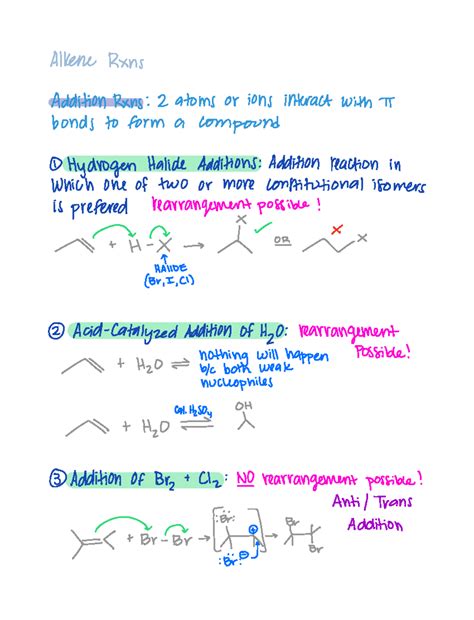 Alkene Rxns
Addition Rxns: 2 atoms or ions interact with π
bonds to form a compound
① Hydrogen Halide Additions: Addition reaction in
which one of two or more constitutional isomers
is prefered rearrangement possible!
+ H-X → X ✓ OR X X
HALIDE
(Br, I, Cl)
② Acid-Catalyzed Addition of H2O: rearrangement
Possible!
+ H2O ⇌ nothing will happen
b/c both weak
nucleophiles
+ H2O Cat. H2SO4 ⇌ OH
③ Addition of Br2 + Cl2: NO rearrangement possible!
Anti / Trans
Addition
+ Br-Br → [:Br: +] → Br
:Br: ⊖ Br